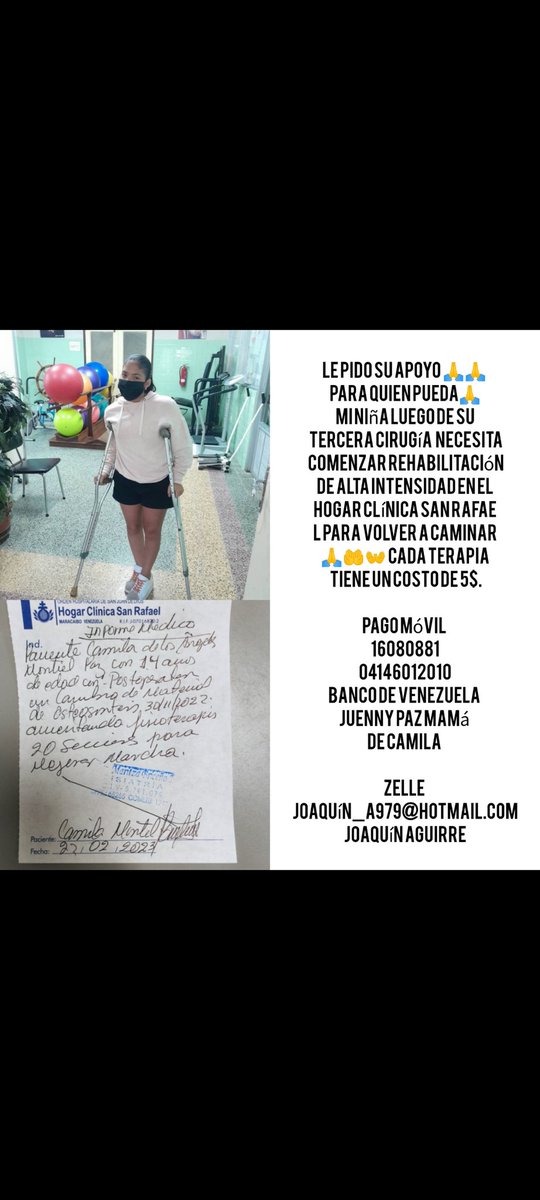 ORDEN HOSPITALARIA DE SAN JUAN DE DIOS
Hogar Clínica San Rafael
MARACAIBO VENEZUELA
Informe Médico
Ind.
Paciente Camila de los Ángeles
Montiel Paz con 14 años
de edad con Postoperatorio
en Cambio de Material
de Osteosíntesis 30/11/2022.
ameritando fisioterapia
20 Secciones para
Mejorar Marcha.
FISIATRIA
Paciente: Camila Montiel
Fecha: 27.02.2023
LE PIDO SU APOYO 🙏🙏
PARA QUIEN PUEDA🙏
MI NIñA LUEGO DE SU
TERCERA CIRUGíA NECESITA
COMENZAR REHABILITACIóN
DE ALTA INTENSIDAD EN EL
HOGAR CLíNICA SAN RAFAE
L PARA VOLVER A CAMINAR
🙏🤲👐 CADA TERAPIA
TIENE UN COSTO DE 5$.
PAGO MóVIL
16080881
04146012010
BANCO DE VENEZUELA
JUENNY PAZ MAMá
DE CAMILA
ZELLE
JOAQUíN_A979@HOTMAIL.COM
JOAQUíN AGUIRRE